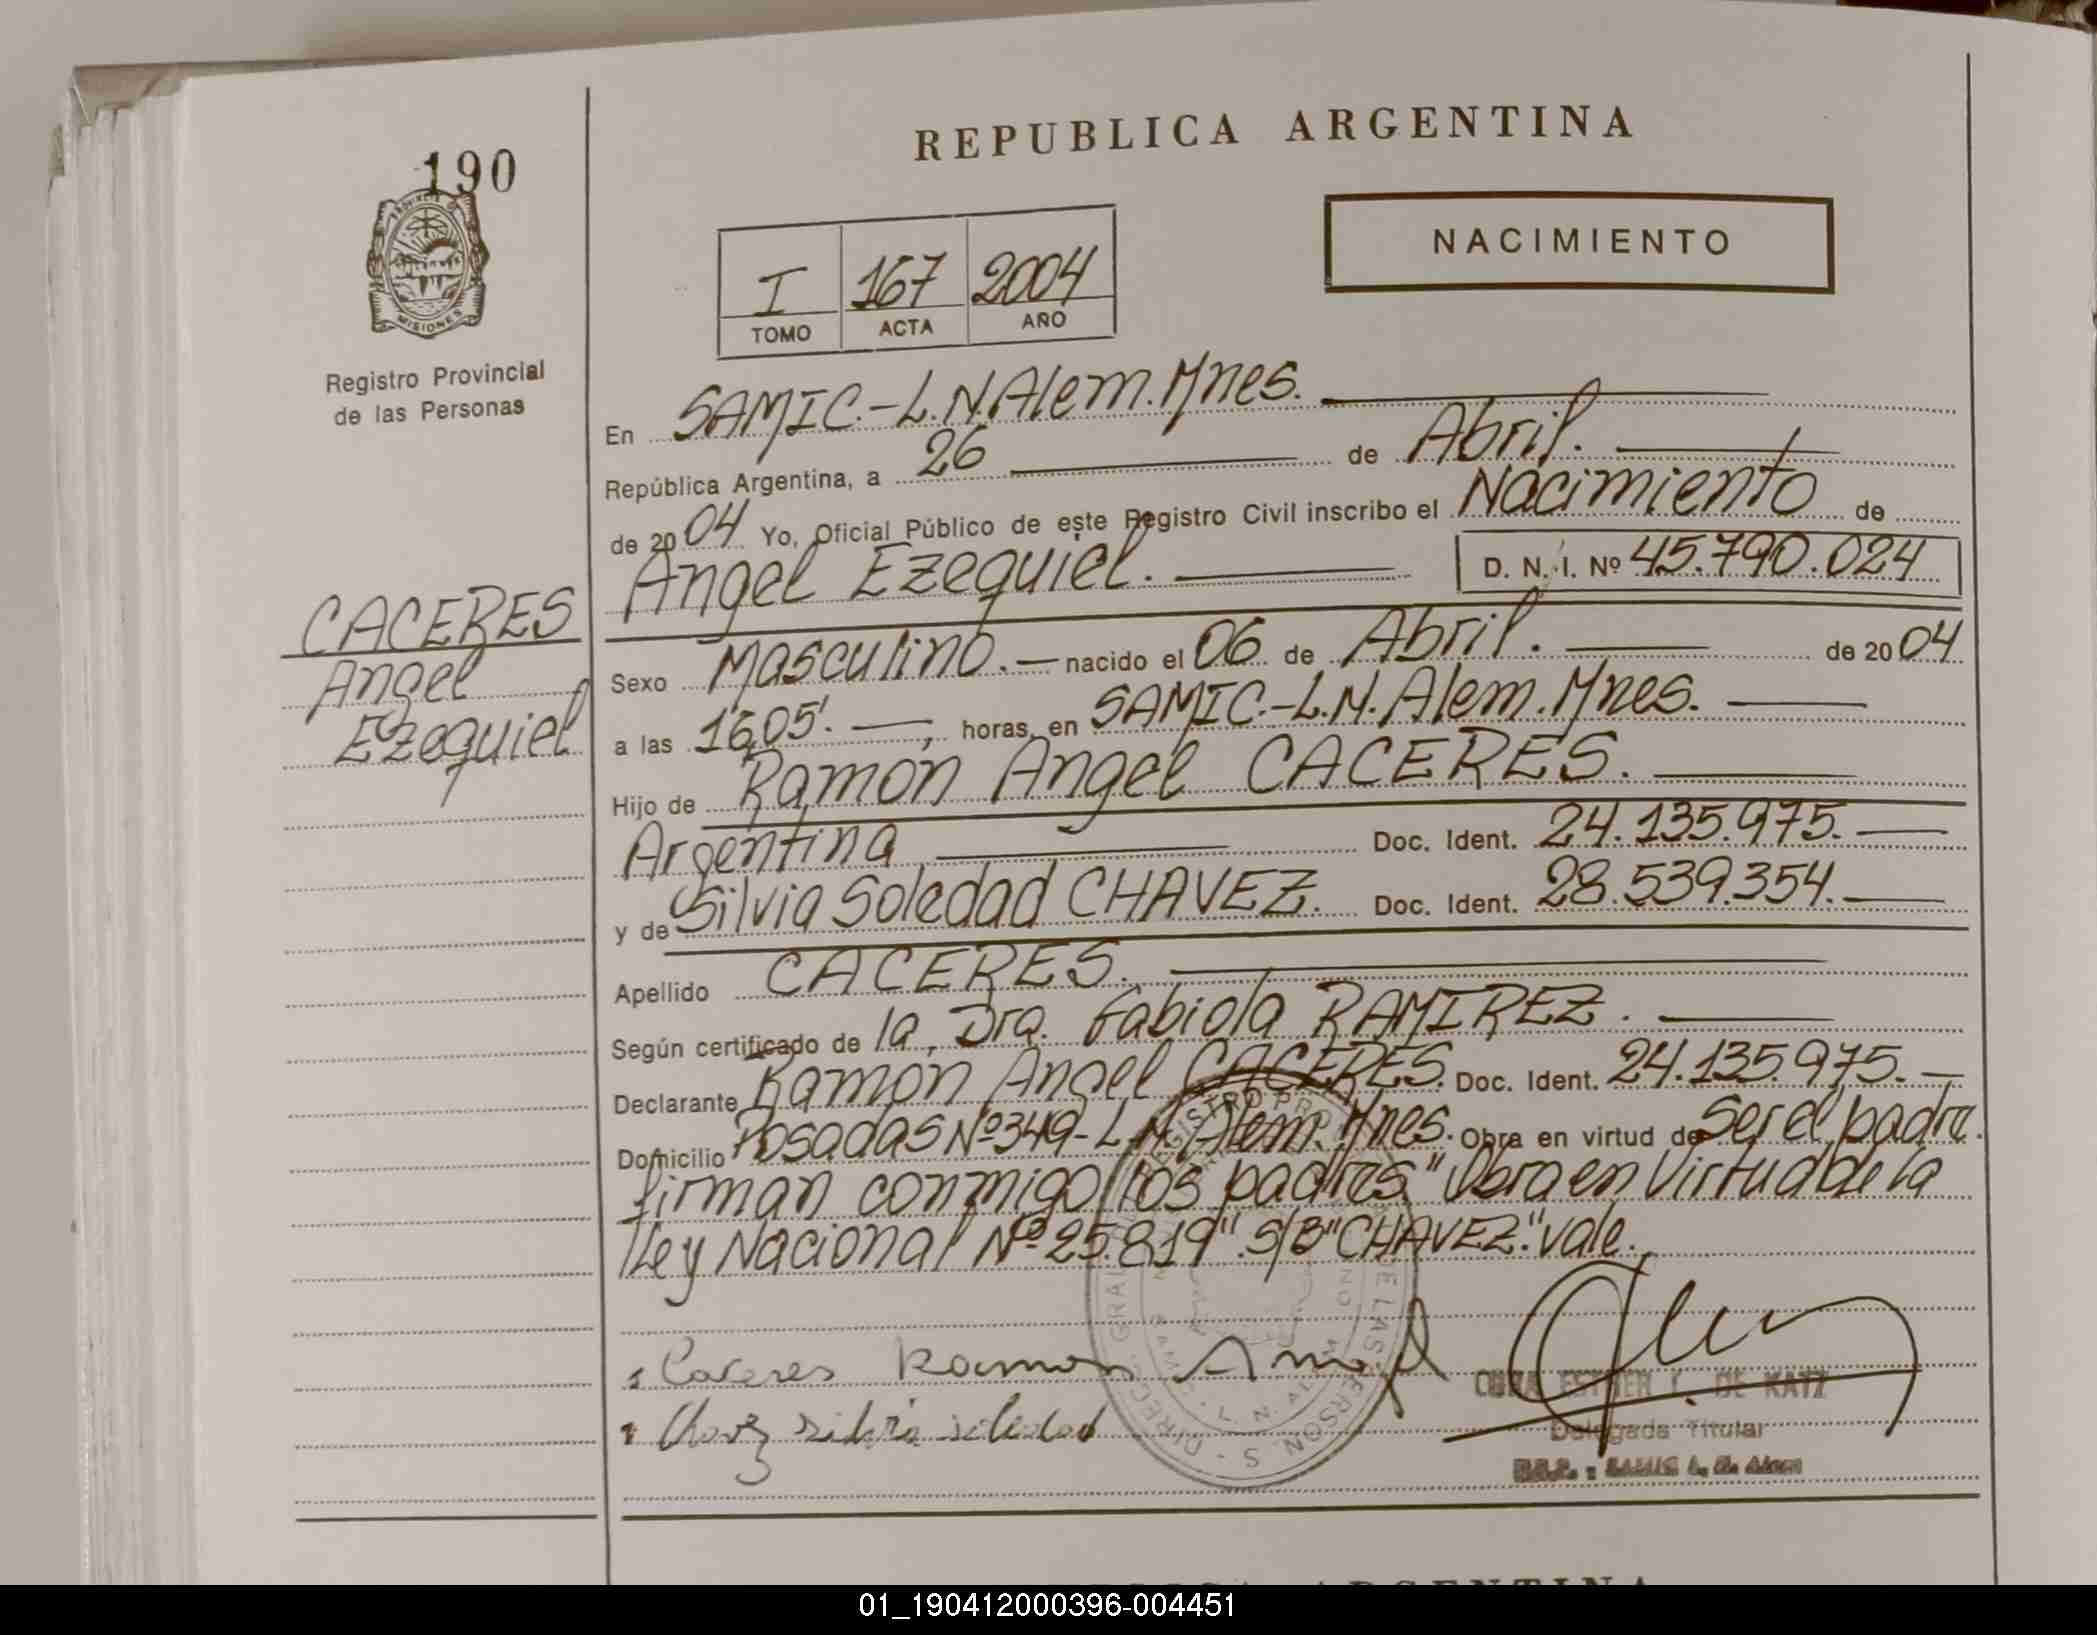 REPUBLICA ARGENTINA
190
PROVINCIA DE
MISIONES
Registro Provincial
de las Personas
NACIMIENTO
I 167 2004
TOMO ACTA AÑO
En SAMIC.-L.N.Alem.Mnes.
República Argentina, a 26 de Abril.
de 2004 Yo, Oficial Público de este Registro Civil inscribo el Nacimiento de
Angel Ezequiel. D. N. I. Nº 45.790.024
CACERES
Angel
Ezequiel
Sexo Masculino. nacido el 06 de Abril. de 2004
a las 16,05'. horas, en SAMIC.-L.N.Alem.Mnes.
Hijo de Ramon Angel CACERES.
Argentina Doc. Ident. 24.135.975.
y de Silvia Soledad CHAVEZ. Doc. Ident. 28.539.354.
Apellido CACERES.
Según certificado de la, Dra. Fabiola RAMIREZ.
Declarante Ramon Angel CACERES. Doc. Ident. 24.135.975.
Domicilio Posadas Nº349-L.N.Alem.Mnes. Obra en virtud de Ser el padre.
firman conmigo los padres." Obra en Virtud de la
Ley Nacional Nº25.819". S/B"CHAVEZ."vale.
Caceres Ramon Angel
Chavez silvia soledad
ESTHER DE KATZ
Delegada Titular
01_190412000396-004451